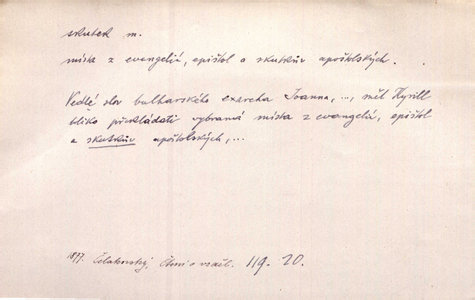 skutek m.
místa z evangelií, epištol a skutkův apoštolských.
Vedlé slov bulharského exarcha Ioanna, ..., měl Kyrill
blíže překládati vybraná místa z evangelií, epištol
a skutkův apoštolských, ...
1877. Čelakovský, Čtení o vzděl. 119. 20.